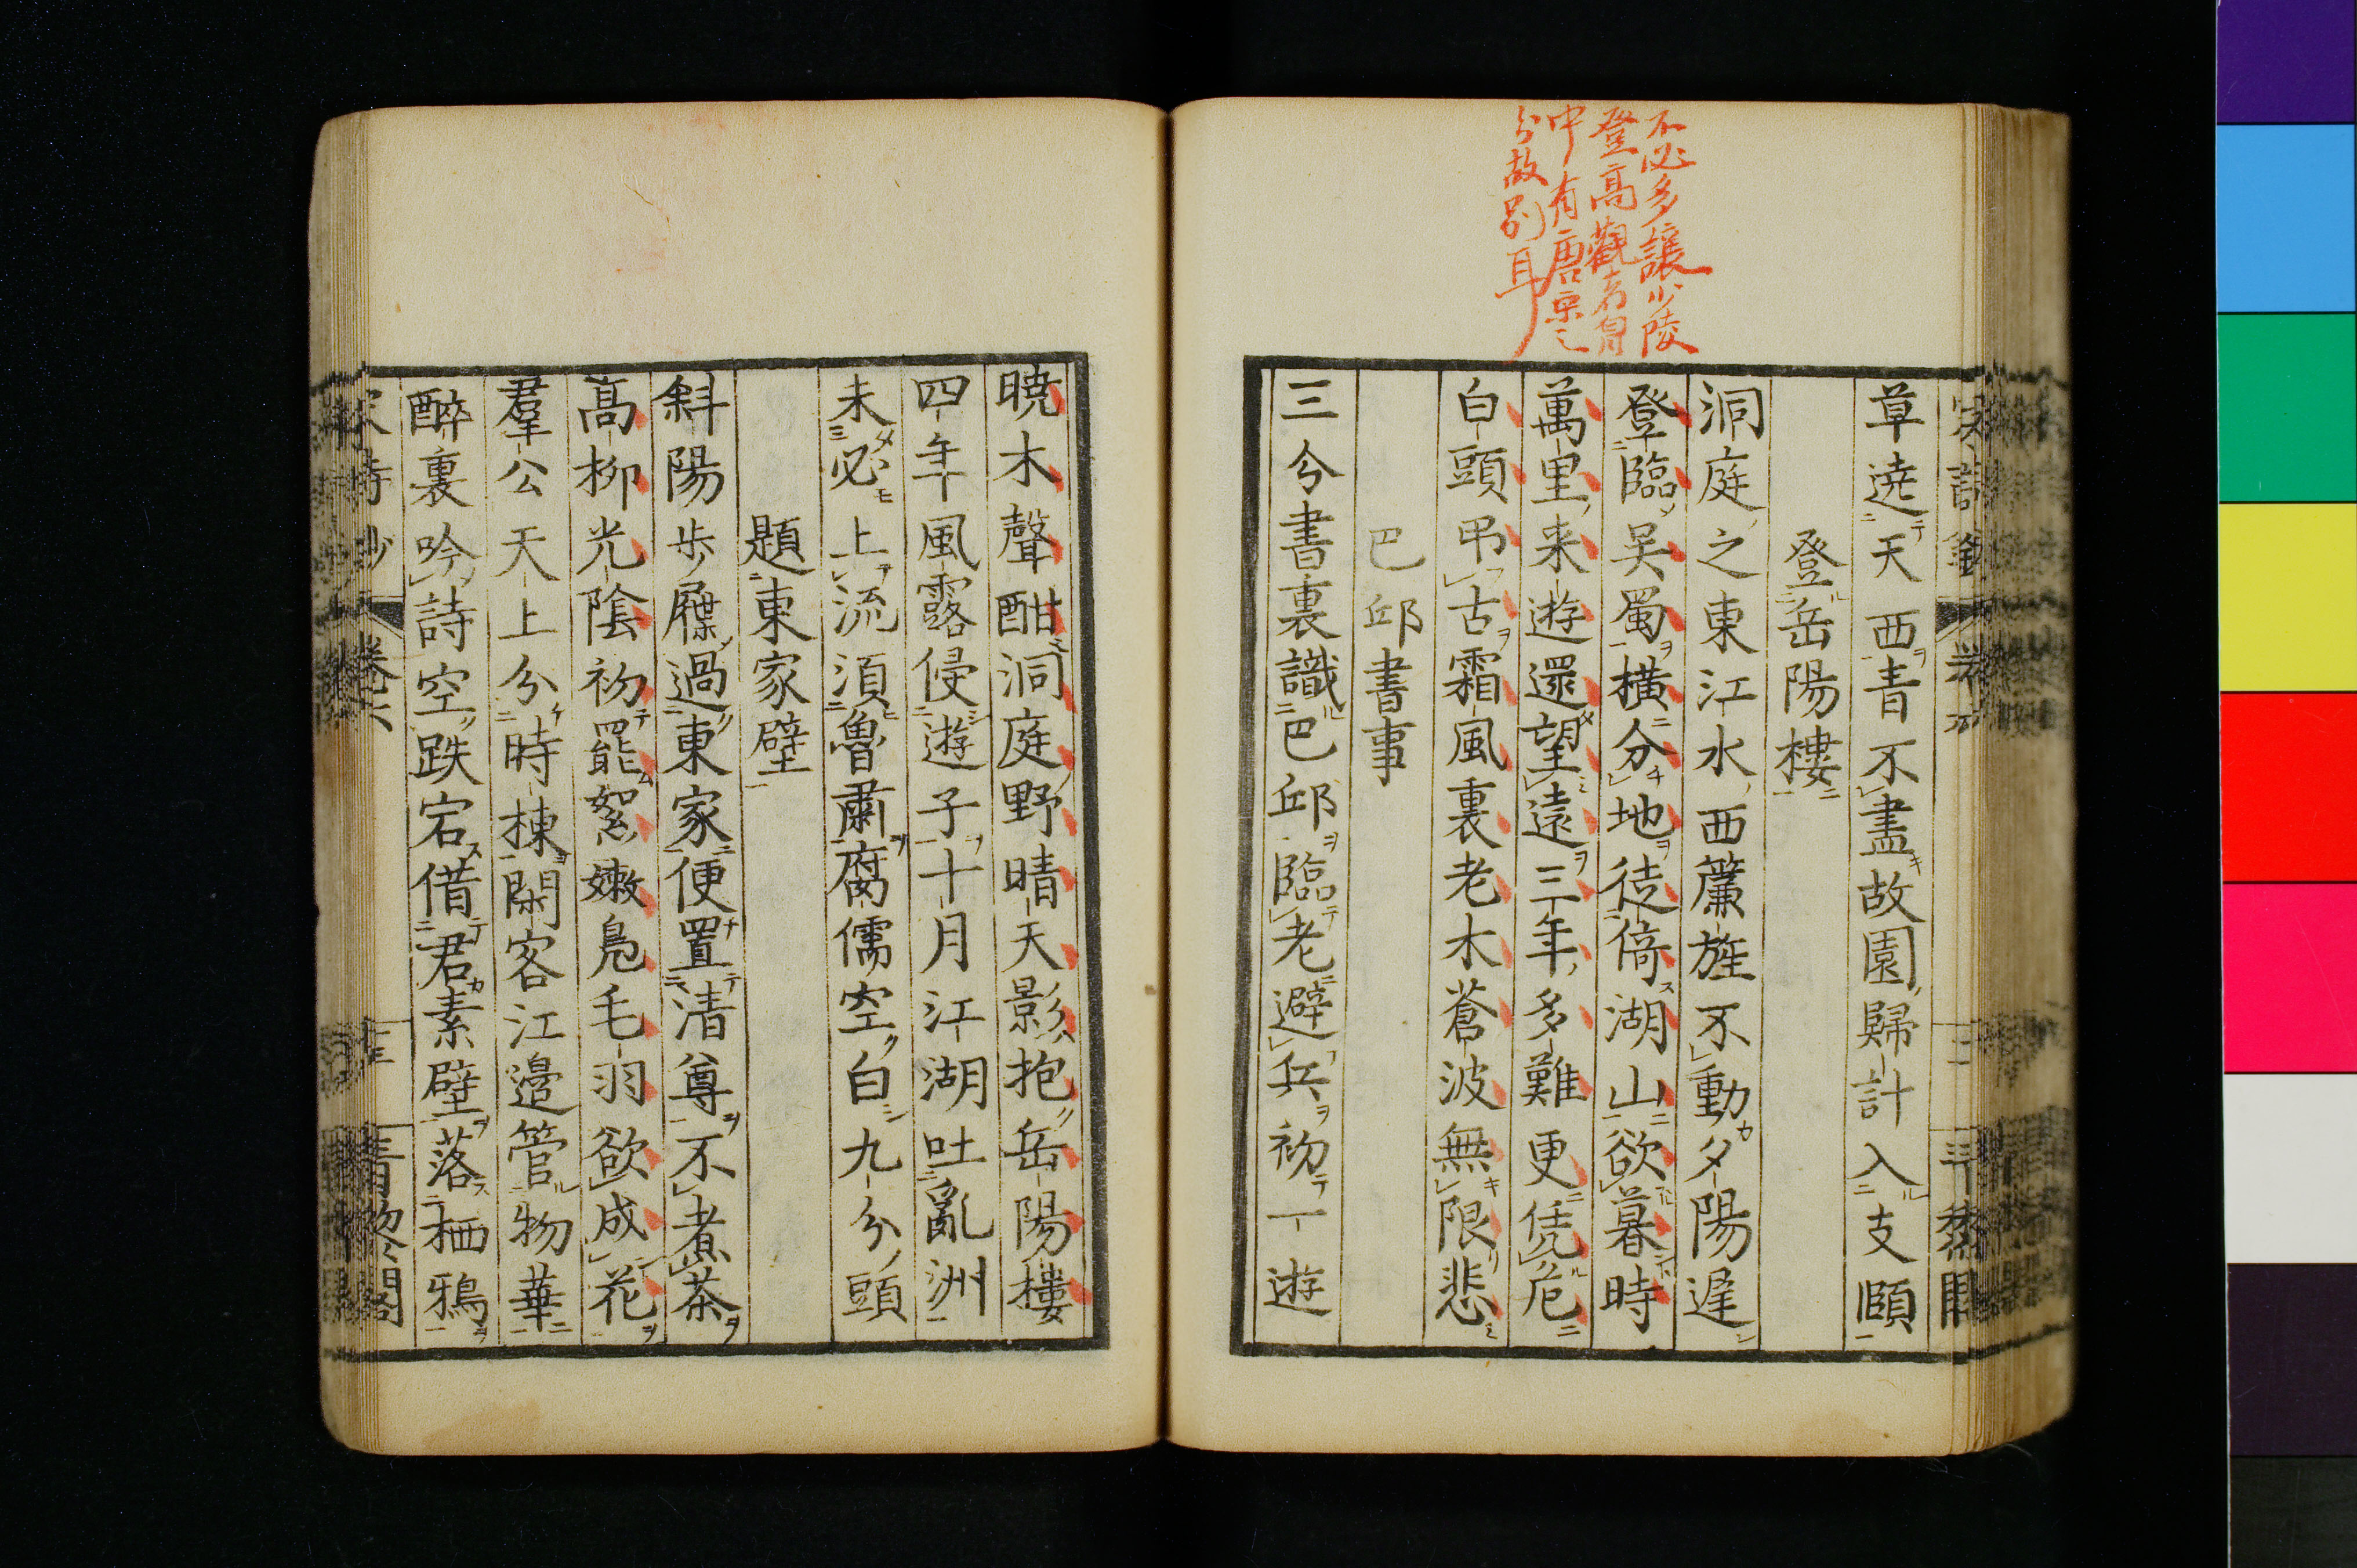 不必多讓少陵
登高觀者自
中有唐宋之
分故別耳
草遶天西青不盡故園歸計入支頤
登岳陽樓
洞庭之東江水西簾旌不動夕陽遲
登臨吳蜀橫分地徒倚湖山欲暮時
萬里来遊還望遠三年多難更凭危
白頭吊古霜風裏老木蒼波無限悲
巴邱書事
三分書裏識巴邱臨老避兵初一遊
曉木聲酣洞庭野晴天影抱岳陽樓
四年風露侵遊子十月江湖吐亂洲
未必上流須魯肅腐儒空白九分頭
題東家壁
斜陽步屧過東家便置清尊不煮茶
高柳光陰初罷絮嫩鳧毛羽欲成花
羣公天上分時棟閑客江邊管物華
醉裏吟詩空跌宕借君素壁落栖鴉
宋詩鈔 卷六